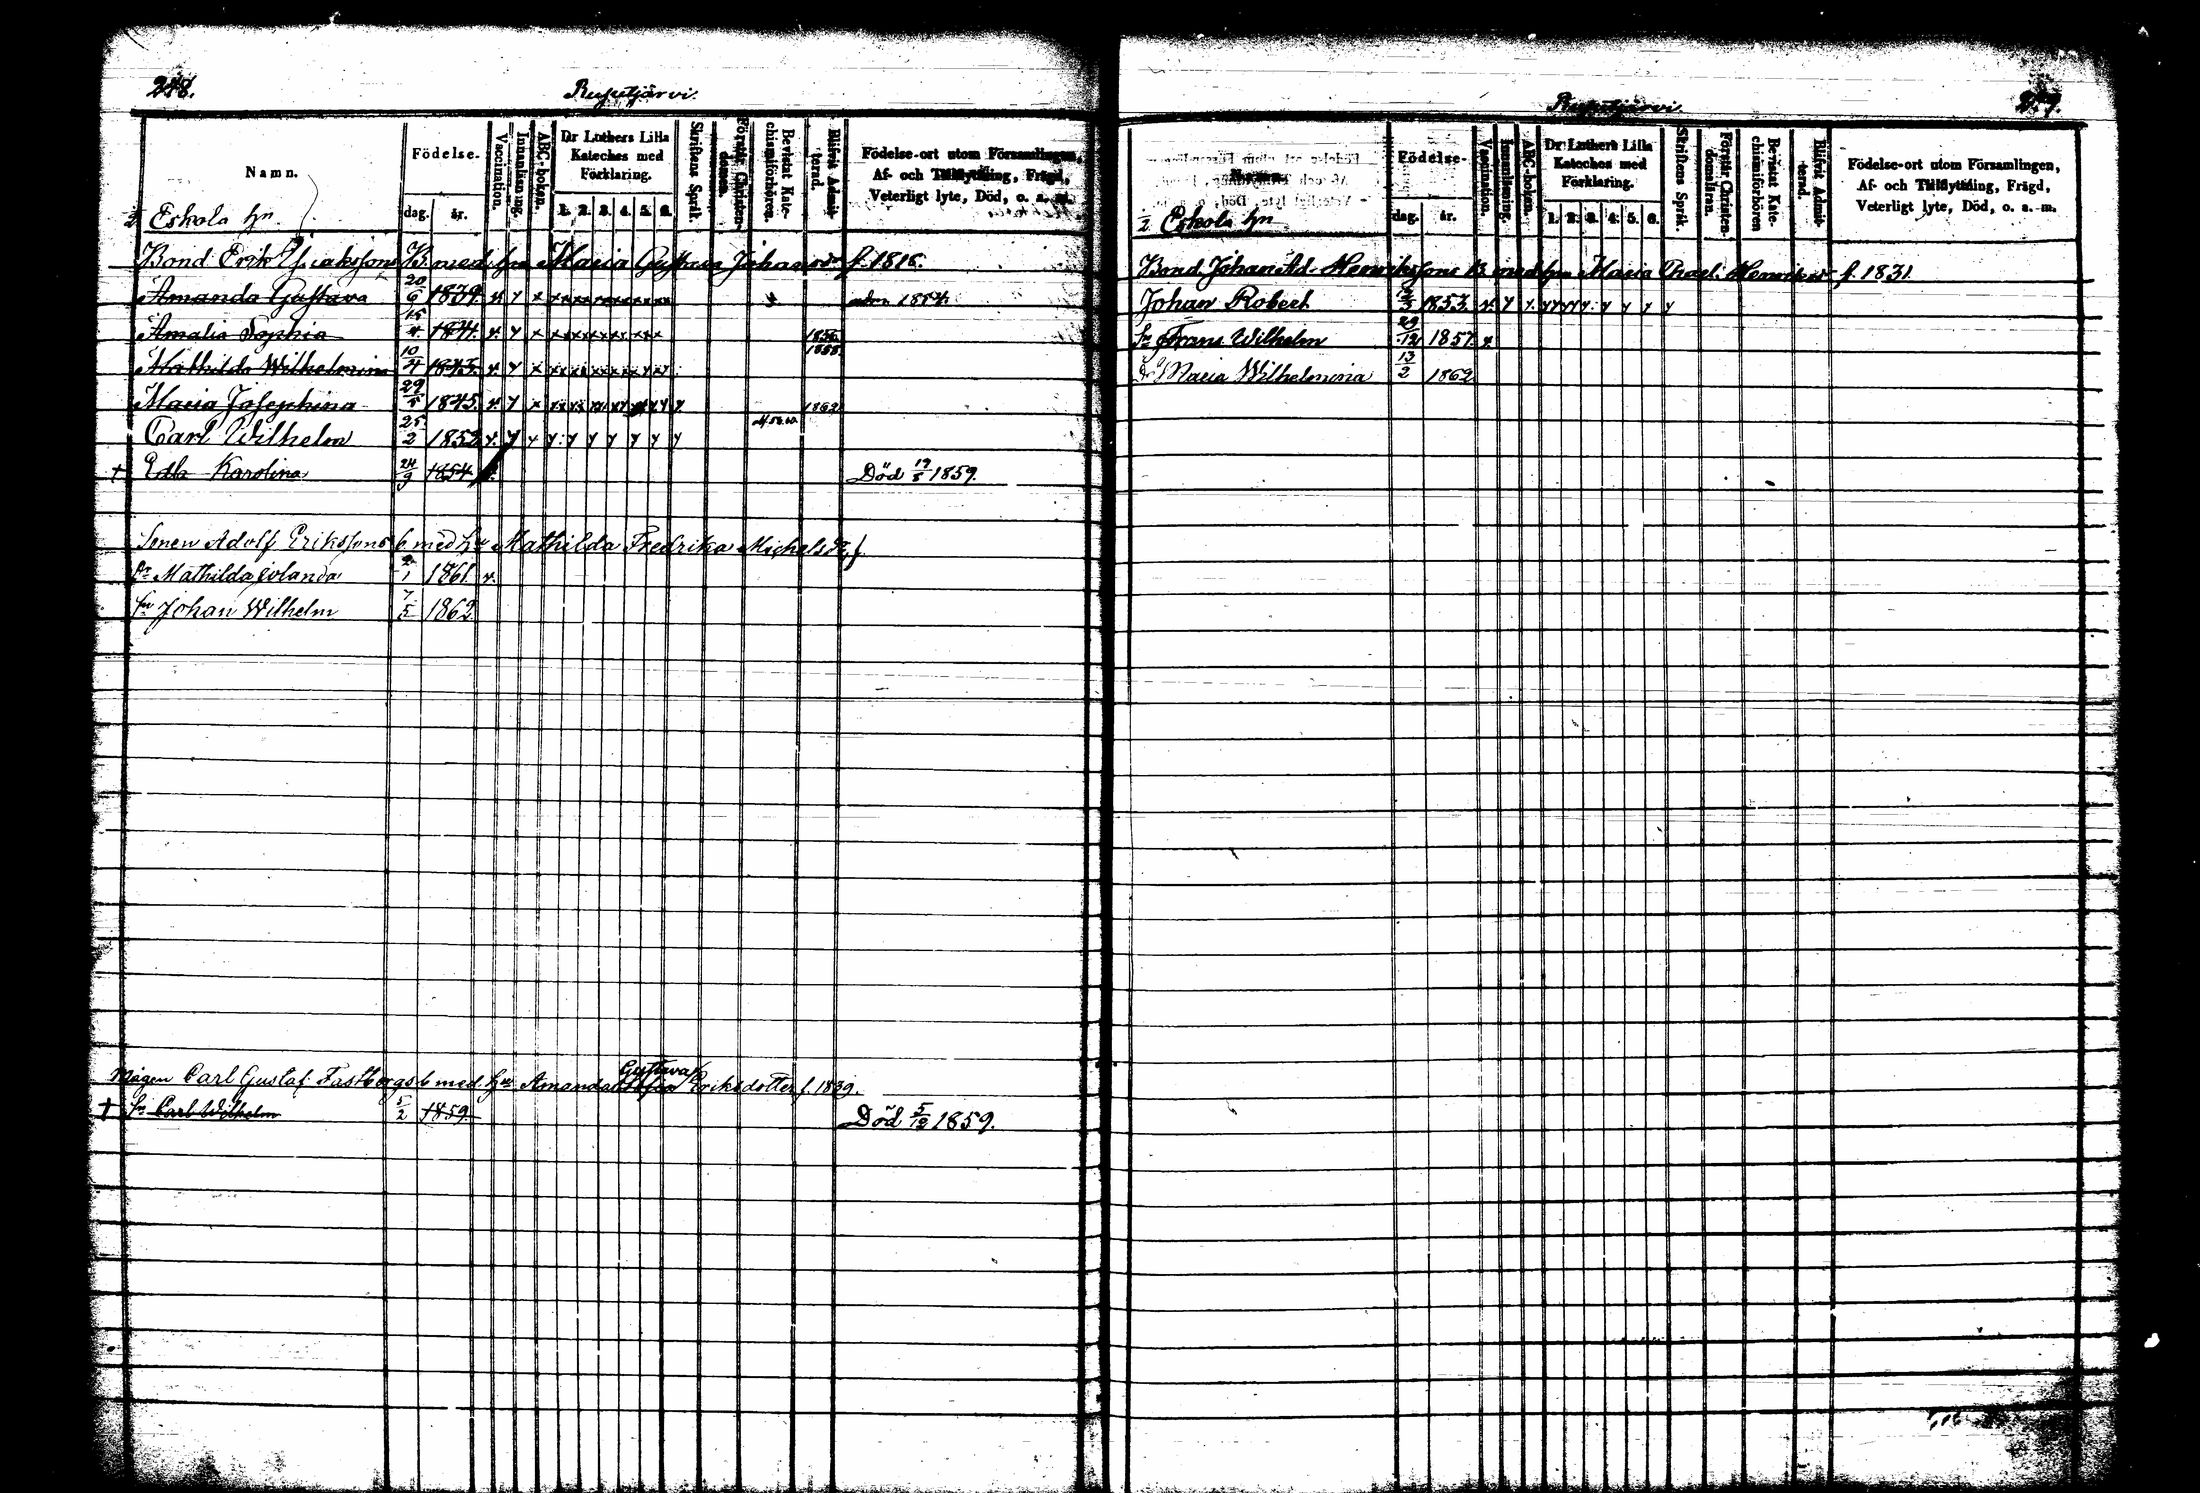 248.
Rusutjärvi.
Namn.
Födelse.
dag. år.
Vaccination.
Innanläsning.
ABC-boken.
Dr Luthers Lilla Kateches med Förklaring.
1. 2. 3. 4. 5. 6.
Skriftens Språk.
Förstår Christendomen.
Bevistat Katechismiförhören.
Blifvit Admitterad.
Födelse-ort utom Församlingen, Af- och Tillflyttning, Frägd, Veterligt lyte, Död, o. s. m.
Eskola hn
Bond. Erik Isakssons B. med hu Maria Johansdr f. 1816.
Amanda Gustava 20/6 1839. adm 1854.
Amalia Sophia 15/4 1841. 1856
Mathilda Wilhelmina 10/4 1843. 1858
Maria Josephina 29/5 1845. 1862
Carl Wilhelm 25/2 1852
† Edla Karolina 24/9 1854 Död 19/8 1859.
Sonen Adolf Erikssons b med hu Mathilda Fredrika Michelsdr
dr Mathilda /1 1861.
sn Johan Wilhelm 7/5 1862
Mågen Carl Gustaf Fastbergs b med hu Amanda Gustava Eriksdotter f. 1839.
† sn Carl Wilhelm 5/2 1859. Död 5/12 1859.
Rusutjärvi.
249.
Födelse-
dag. år.
Vaccination.
Innanläsning.
ABC-boken.
Dr Luthers Lilla Kateches med Förklaring.
1. 2. 3. 4. 5. 6.
Skriftens Språk.
Förstår Christendomsläran.
Bevistat Katechismiförhören
Blifvit Admitterad.
Födelse-ort utom Församlingen, Af- och Tillflyttning, Frägd, Veterligt lyte, Död, o. s. m.
1/2 Eskola hn
Bond. Johan Ad. Henrikssons B med hu Maria Henriksdr f. 1831.
Johan Robert 1853.
Sn Frans Wilhelm 29/12 1857.
Dr Maria Wilhelmina 13/2 1862